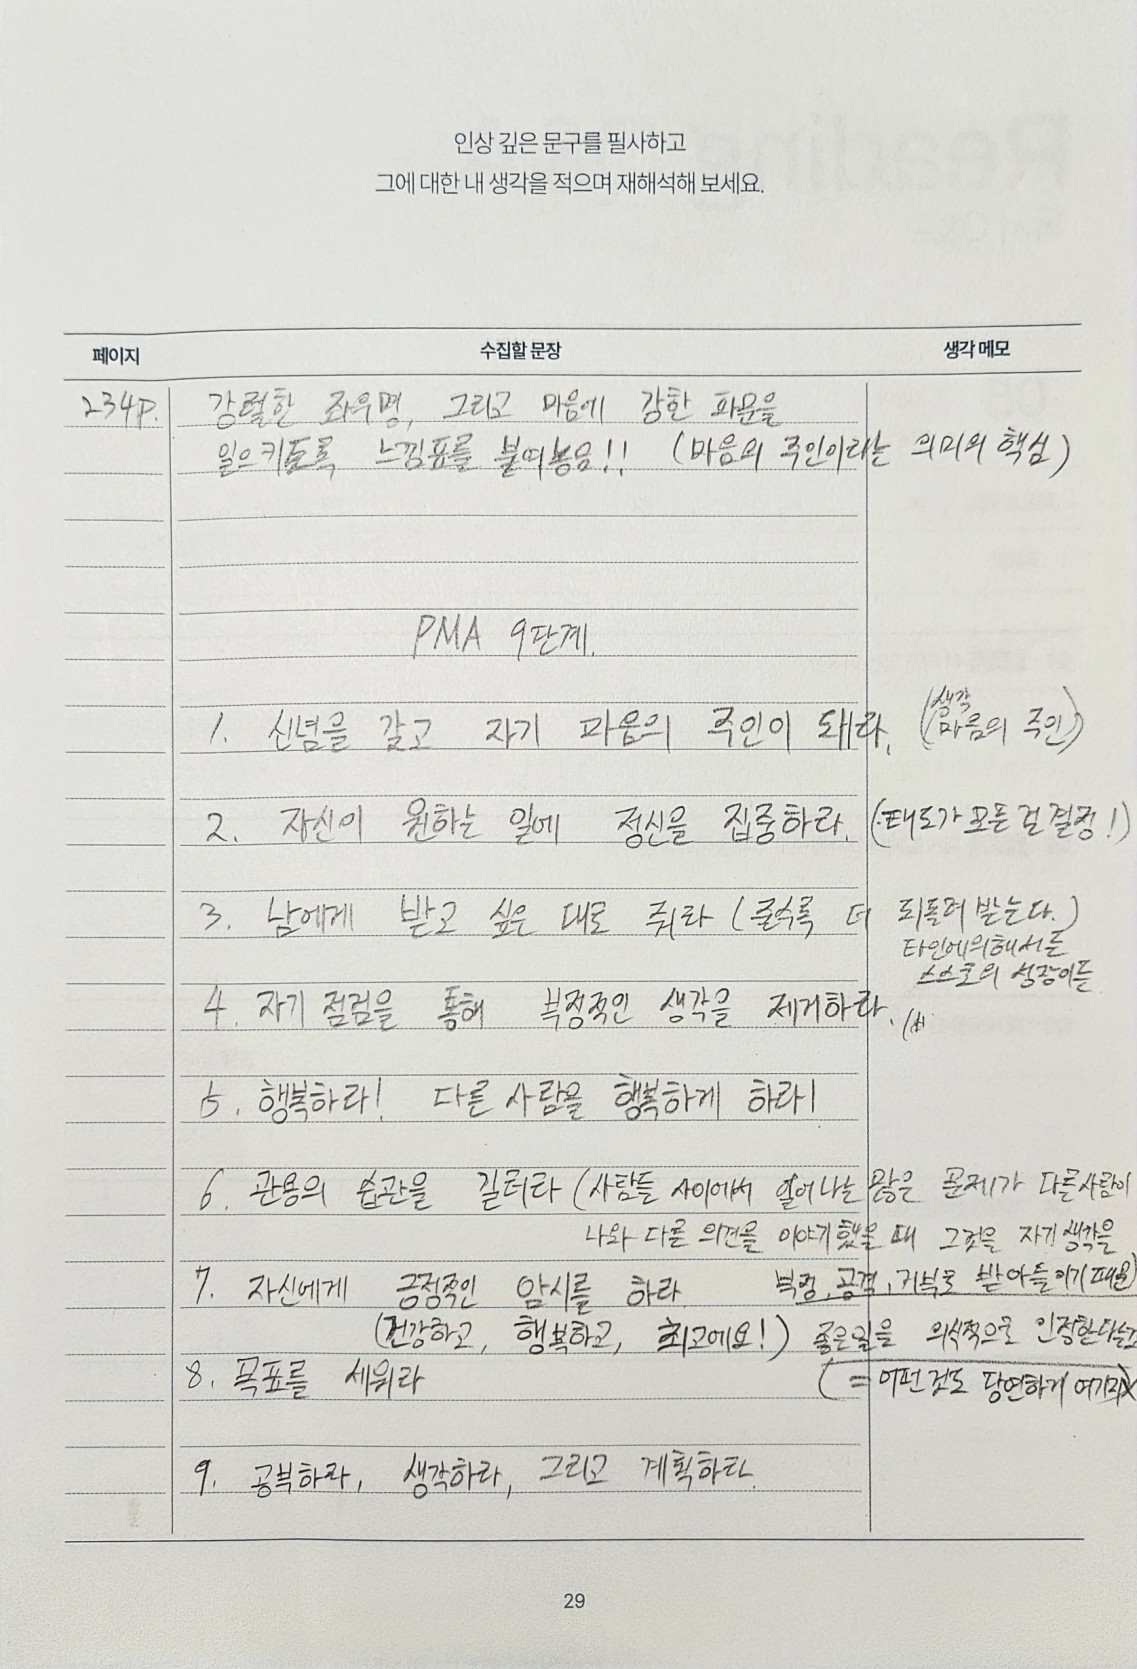 인상 깊은 문구를 필사하고
그에 대한 내 생각을 적으며 재해석해 보세요.
페이지 수집할 문장 생각 메모
234p. 강렬한 좌우명, 그리고 마음에 강한 파문을
일으키도록 느낌표를 붙여놓음!! (마음의 주인이라는 의미의 핵심)
PMA 9단계.
생각
1. 신념을 갖고 자기 마음의 주인이 돼라. (마음의 주인)
2. 자신이 원하는 일에 정신을 집중하라. (태도가 모든 걸 결정!)
3. 남에게 받고 싶은 대로 줘라 (줄수록 더 되돌려 받는다.)
타인에의해서든
스스로의 성장이든
4. 자기 점검을 통해 부정적인 생각을 제거하라.
5. 행복하라! 다른 사람을 행복하게 하라!
6. 관용의 습관을 길러라 (사람들 사이에서 일어나는 많은 문제가 다른사람이
나와 다른 의견을 이야기했을 때 그것을 자기 생각을
7. 자신에게 긍정적인 암시를 하라 부정, 공격, 거부로 받아들이기때문)
(건강하고, 행복하고, 최고에요!) 좋은일을 의식적으로 인정한다는것
8. 목표를 세워라 (= 어떤것도 당연하게 여기지X
9. 공부하라, 생각하라, 그리고 계획하라.
29